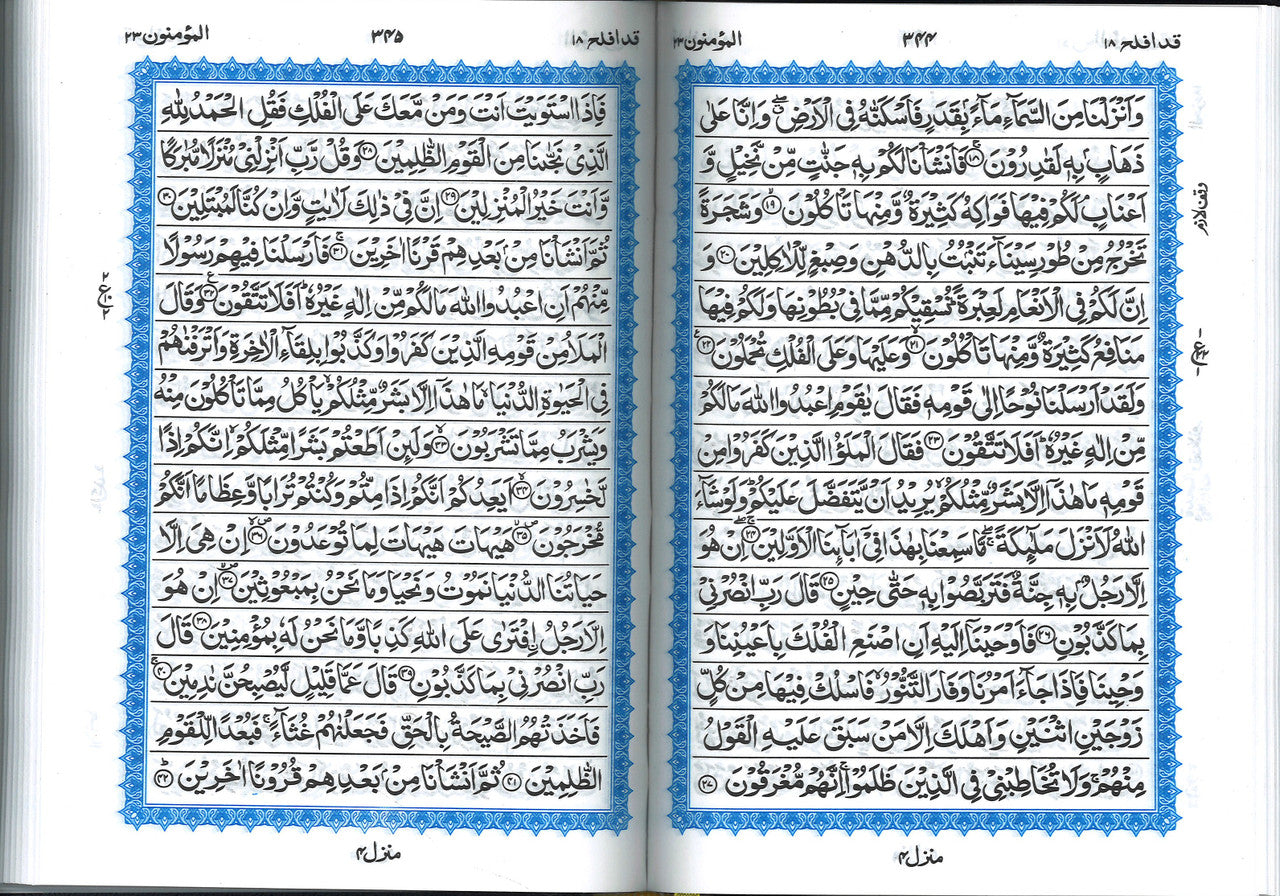 قد افلح ١٨
٣۴۴
المؤمنون ٢٣
وَاَنْزَلْنَا مِنَ السَّمَآءِ مَآءًۢ بِقَدَرٍ فَاَسْكَنّٰهُ فِی الْاَرْضِ ۖ وَاِنَّا عَلٰی
ذَهَابٍۭ بِهٖ لَقٰدِرُوْنَ ۚ۝١٨ فَاَنْشَاْنَا لَكُمْ بِهٖ جَنّٰتٍ مِّنْ نَّخِیْلٍ وَّ
اَعْنَابٍ ۘ لَكُمْ فِیْهَا فَوَاكِهُ كَثِیْرَةٌ وَّمِنْهَا تَاْكُلُوْنَ ۙ۝١٩ وَشَجَرَةً
تَخْرُجُ مِنْ طُوْرِ سَیْنَآءَ تَنْۢبُتُ بِالدُّهْنِ وَصِبْغٍ لِّلْاٰكِلِیْنَ ۝٢٠ وَ
اِنَّ لَكُمْ فِی الْاَنْعَامِ لَعِبْرَةً ؕ نُسْقِیْكُمْ مِّمَّا فِیْ بُطُوْنِهَا وَلَكُمْ فِیْهَا
مَنَافِعُ كَثِیْرَةٌ وَّمِنْهَا تَاْكُلُوْنَ ۙ۝٢١ وَعَلَیْهَا وَعَلَی الْفُلْكِ تُحْمَلُوْنَ ۧ۝٢٢
وَلَقَدْ اَرْسَلْنَا نُوْحًا اِلٰی قَوْمِهٖ فَقَالَ یٰقَوْمِ اعْبُدُوا اللّٰهَ مَا لَكُمْ
مِّنْ اِلٰهٍ غَیْرُهٗ ؕ اَفَلَا تَتَّقُوْنَ ۝٢٣ فَقَالَ الْمَلَؤُا الَّذِیْنَ كَفَرُوْا مِنْ
قَوْمِهٖ مَا هٰذَآ اِلَّا بَشَرٌ مِّثْلُكُمْ ۙ یُرِیْدُ اَنْ یَّتَفَضَّلَ عَلَیْكُمْ ؕ وَلَوْ شَآءَ
اللّٰهُ لَاَنْزَلَ مَلٰٓئِكَةً ۖۚ مَّا سَمِعْنَا بِهٰذَا فِیْۤ اٰبَآئِنَا الْاَوَّلِیْنَ ۖۚ۝٢٤ اِنْ هُوَ
اِلَّا رَجُلٌۢ بِهٖ جِنَّةٌ فَتَرَبَّصُوْا بِهٖ حَتّٰی حِیْنٍ ۝٢٥ قَالَ رَبِّ انْصُرْنِیْ
بِمَا كَذَّبُوْنِ ۝٢٦ فَاَوْحَیْنَاۤ اِلَیْهِ اَنِ اصْنَعِ الْفُلْكَ بِاَعْیُنِنَا وَ
وَحْیِنَا فَاِذَا جَآءَ اَمْرُنَا وَفَارَ التَّنُّوْرُ ۙ فَاسْلُكْ فِیْهَا مِنْ كُلٍّ
زَوْجَیْنِ اثْنَیْنِ وَاَهْلَكَ اِلَّا مَنْ سَبَقَ عَلَیْهِ الْقَوْلُ
مِنْهُمْ ۚ وَلَا تُخَاطِبْنِیْ فِی الَّذِیْنَ ظَلَمُوْا ۚ اِنَّهُمْ مُّغْرَقُوْنَ ۝٢٧
وقف لازم
منزل ۴
قد افلح ١٨
٣۴۵
المؤمنون ٢٣
فَاِذَا اسْتَوَیْتَ اَنْتَ وَمَنْ مَّعَكَ عَلَی الْفُلْكِ فَقُلِ الْحَمْدُ لِلّٰهِ
الَّذِیْ نَجّٰىنَا مِنَ الْقَوْمِ الظّٰلِمِیْنَ ۝٢٨ وَقُلْ رَّبِّ اَنْزِلْنِیْ مُنْزَلًا مُّبٰرَكًا
وَّاَنْتَ خَیْرُ الْمُنْزِلِیْنَ ۝٢٩ اِنَّ فِیْ ذٰلِكَ لَاٰیٰتٍ وَّاِنْ كُنَّا لَمُبْتَلِیْنَ ۝٣٠
ثُمَّ اَنْشَاْنَا مِنْۢ بَعْدِهِمْ قَرْنًا اٰخَرِیْنَ ۚ۝٣١ فَاَرْسَلْنَا فِیْهِمْ رَسُوْلًا
مِّنْهُمْ اَنِ اعْبُدُوا اللّٰهَ مَا لَكُمْ مِّنْ اِلٰهٍ غَیْرُهٗ ؕ اَفَلَا تَتَّقُوْنَ ۧ۝٣٢ وَقَالَ
الْمَلَاُ مِنْ قَوْمِهِ الَّذِیْنَ كَفَرُوْا وَكَذَّبُوْا بِلِقَآءِ الْاٰخِرَةِ وَاَتْرَفْنٰهُمْ
فِی الْحَیٰوةِ الدُّنْیَا ۙ مَا هٰذَاۤ اِلَّا بَشَرٌ مِّثْلُكُمْ ۙ یَاْكُلُ مِمَّا تَاْكُلُوْنَ مِنْهُ
وَیَشْرَبُ مِمَّا تَشْرَبُوْنَ ۙ۝٣٣ وَلَئِنْ اَطَعْتُمْ بَشَرًا مِّثْلَكُمْ ۙ اِنَّكُمْ اِذًا
لَّخٰسِرُوْنَ ۙ۝٣٤ اَیَعِدُكُمْ اَنَّكُمْ اِذَا مِتُّمْ وَكُنْتُمْ تُرَابًا وَّعِظَامًا اَنَّكُمْ
مُّخْرَجُوْنَ ۙ۝٣٥ هَیْهَاتَ هَیْهَاتَ لِمَا تُوْعَدُوْنَ ۙ۝٣٦ اِنْ هِیَ اِلَّا
حَیَاتُنَا الدُّنْیَا نَمُوْتُ وَنَحْیَا وَمَا نَحْنُ بِمَبْعُوْثِیْنَ ۙ۝٣٧ اِنْ هُوَ
اِلَّا رَجُلُ اِ۟فْتَرٰی عَلَی اللّٰهِ كَذِبًا وَّمَا نَحْنُ لَهٗ بِمُؤْمِنِیْنَ ۝٣٨ قَالَ
رَبِّ انْصُرْنِیْ بِمَا كَذَّبُوْنِ ۝٣٩ قَالَ عَمَّا قَلِیْلٍ لَّیُصْبِحُنَّ نٰدِمِیْنَ ۚ۝٤٠
فَاَخَذَتْهُمُ الصَّیْحَةُ بِالْحَقِّ فَجَعَلْنٰهُمْ غُثَآءً ۚ فَبُعْدًا لِّلْقَوْمِ
الظّٰلِمِیْنَ ۝٤١ ثُمَّ اَنْشَاْنَا مِنْۢ بَعْدِهِمْ قُرُوْنًا اٰخَرِیْنَ ؕ۝٤٢
منزل ۴